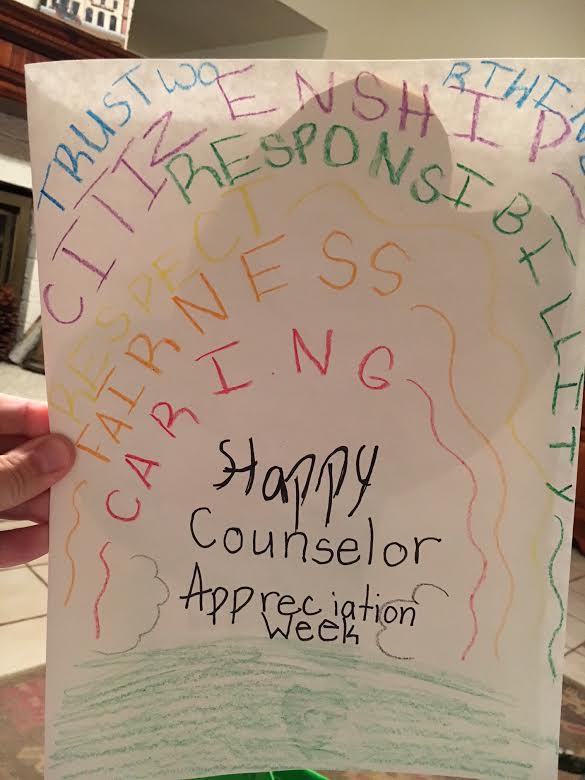 TRUSTWORTHIN
CITIZENSHIP
RESPONSIBILLITY
RESPECT
FAIRNESS
CARING
Happy
Counselor
Appreciation
Week